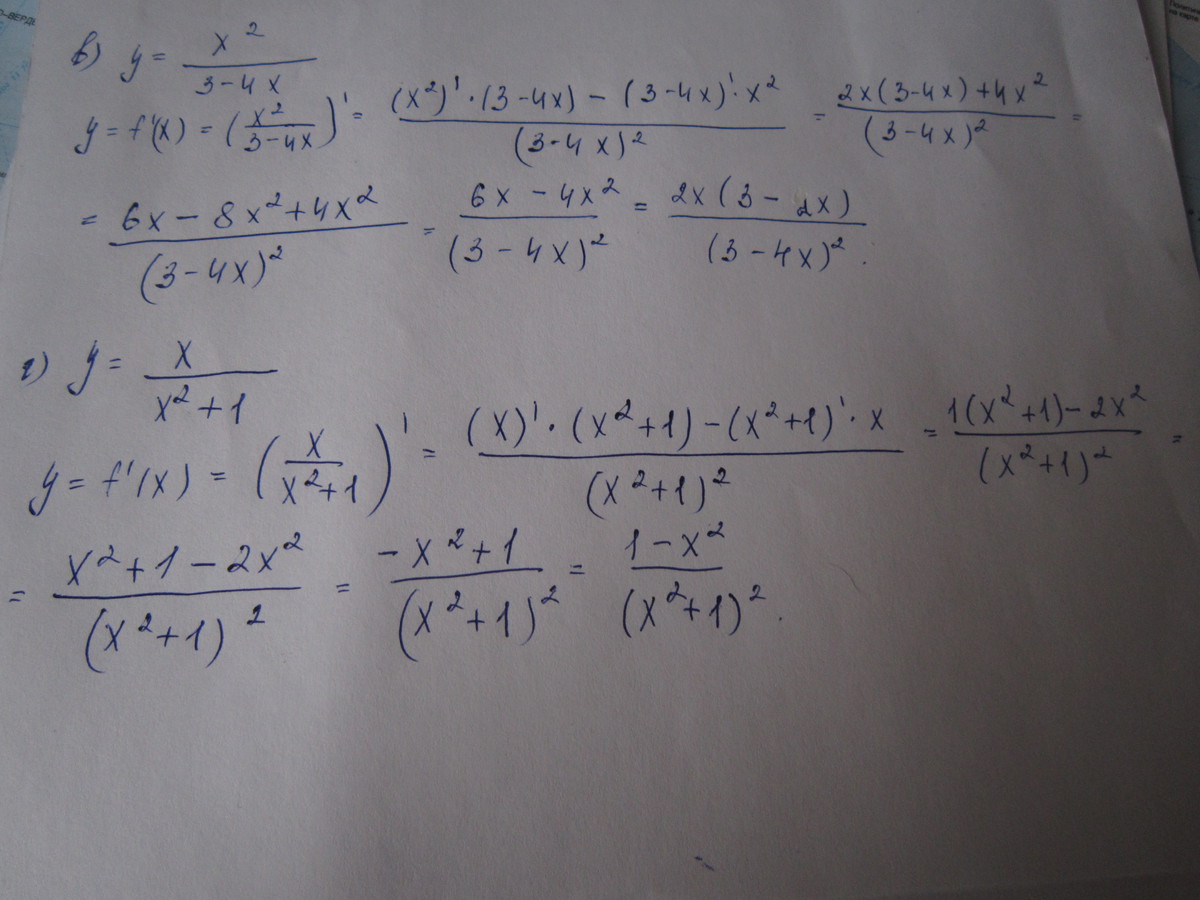 в) y = x²/(3-4x)
y = f'(x) = (x²/(3-4x))' = ((x²)'·(3-4x) - (3-4x)'·x²)/(3-4x)² = (2x(3-4x)+4x²)/(3-4x)² =
= (6x - 8x²+4x²)/(3-4x)² = (6x - 4x²)/(3-4x)² = (2x(3-2x))/(3-4x)².
г) y = x/(x²+1)
y = f'(x) = (x/(x²+1))' = ((x)'·(x²+1)-(x²+1)'·x)/(x²+1)² = (1(x²+1)-2x²)/(x²+1)² =
= (x²+1-2x²)/(x²+1)² = (-x²+1)/(x²+1)² = (1-x²)/(x²+1)².